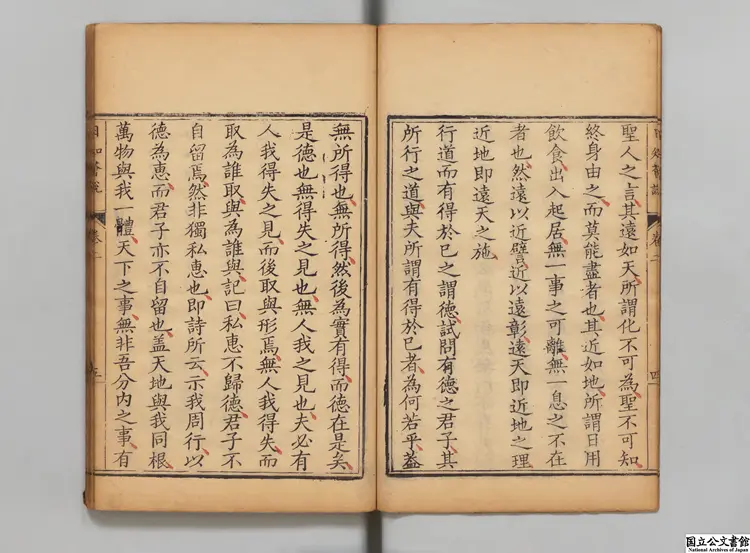 聖人之言其遠如天所謂化不可為聖不可知
終身由之而莫能盡者也其近如地所謂日用
飲食出入起居無一事之可離無一息之不在
者也然遠以近譬近以遠彰遠天即近地之理
近地即遠天之施
行道而有得於已之謂德試問有德之君子其
所行之道與夫所謂有得於已者為何若乎葢
無所得也無所得然後為實有得而德在是矣
是德也無得失之見也無人我之見也夫必有
人我得失之見而後取與形焉無人我得失而
取為誰取與為誰與記曰私惠不歸德君子不
自留焉然非獨私惠也即詩所云示我周行以
德為惠而君子亦不自留也蓋天地與我同根
萬物與我一體天下之事無非吾分內之事有
卷二
国立公文書館
National Archives of Japan